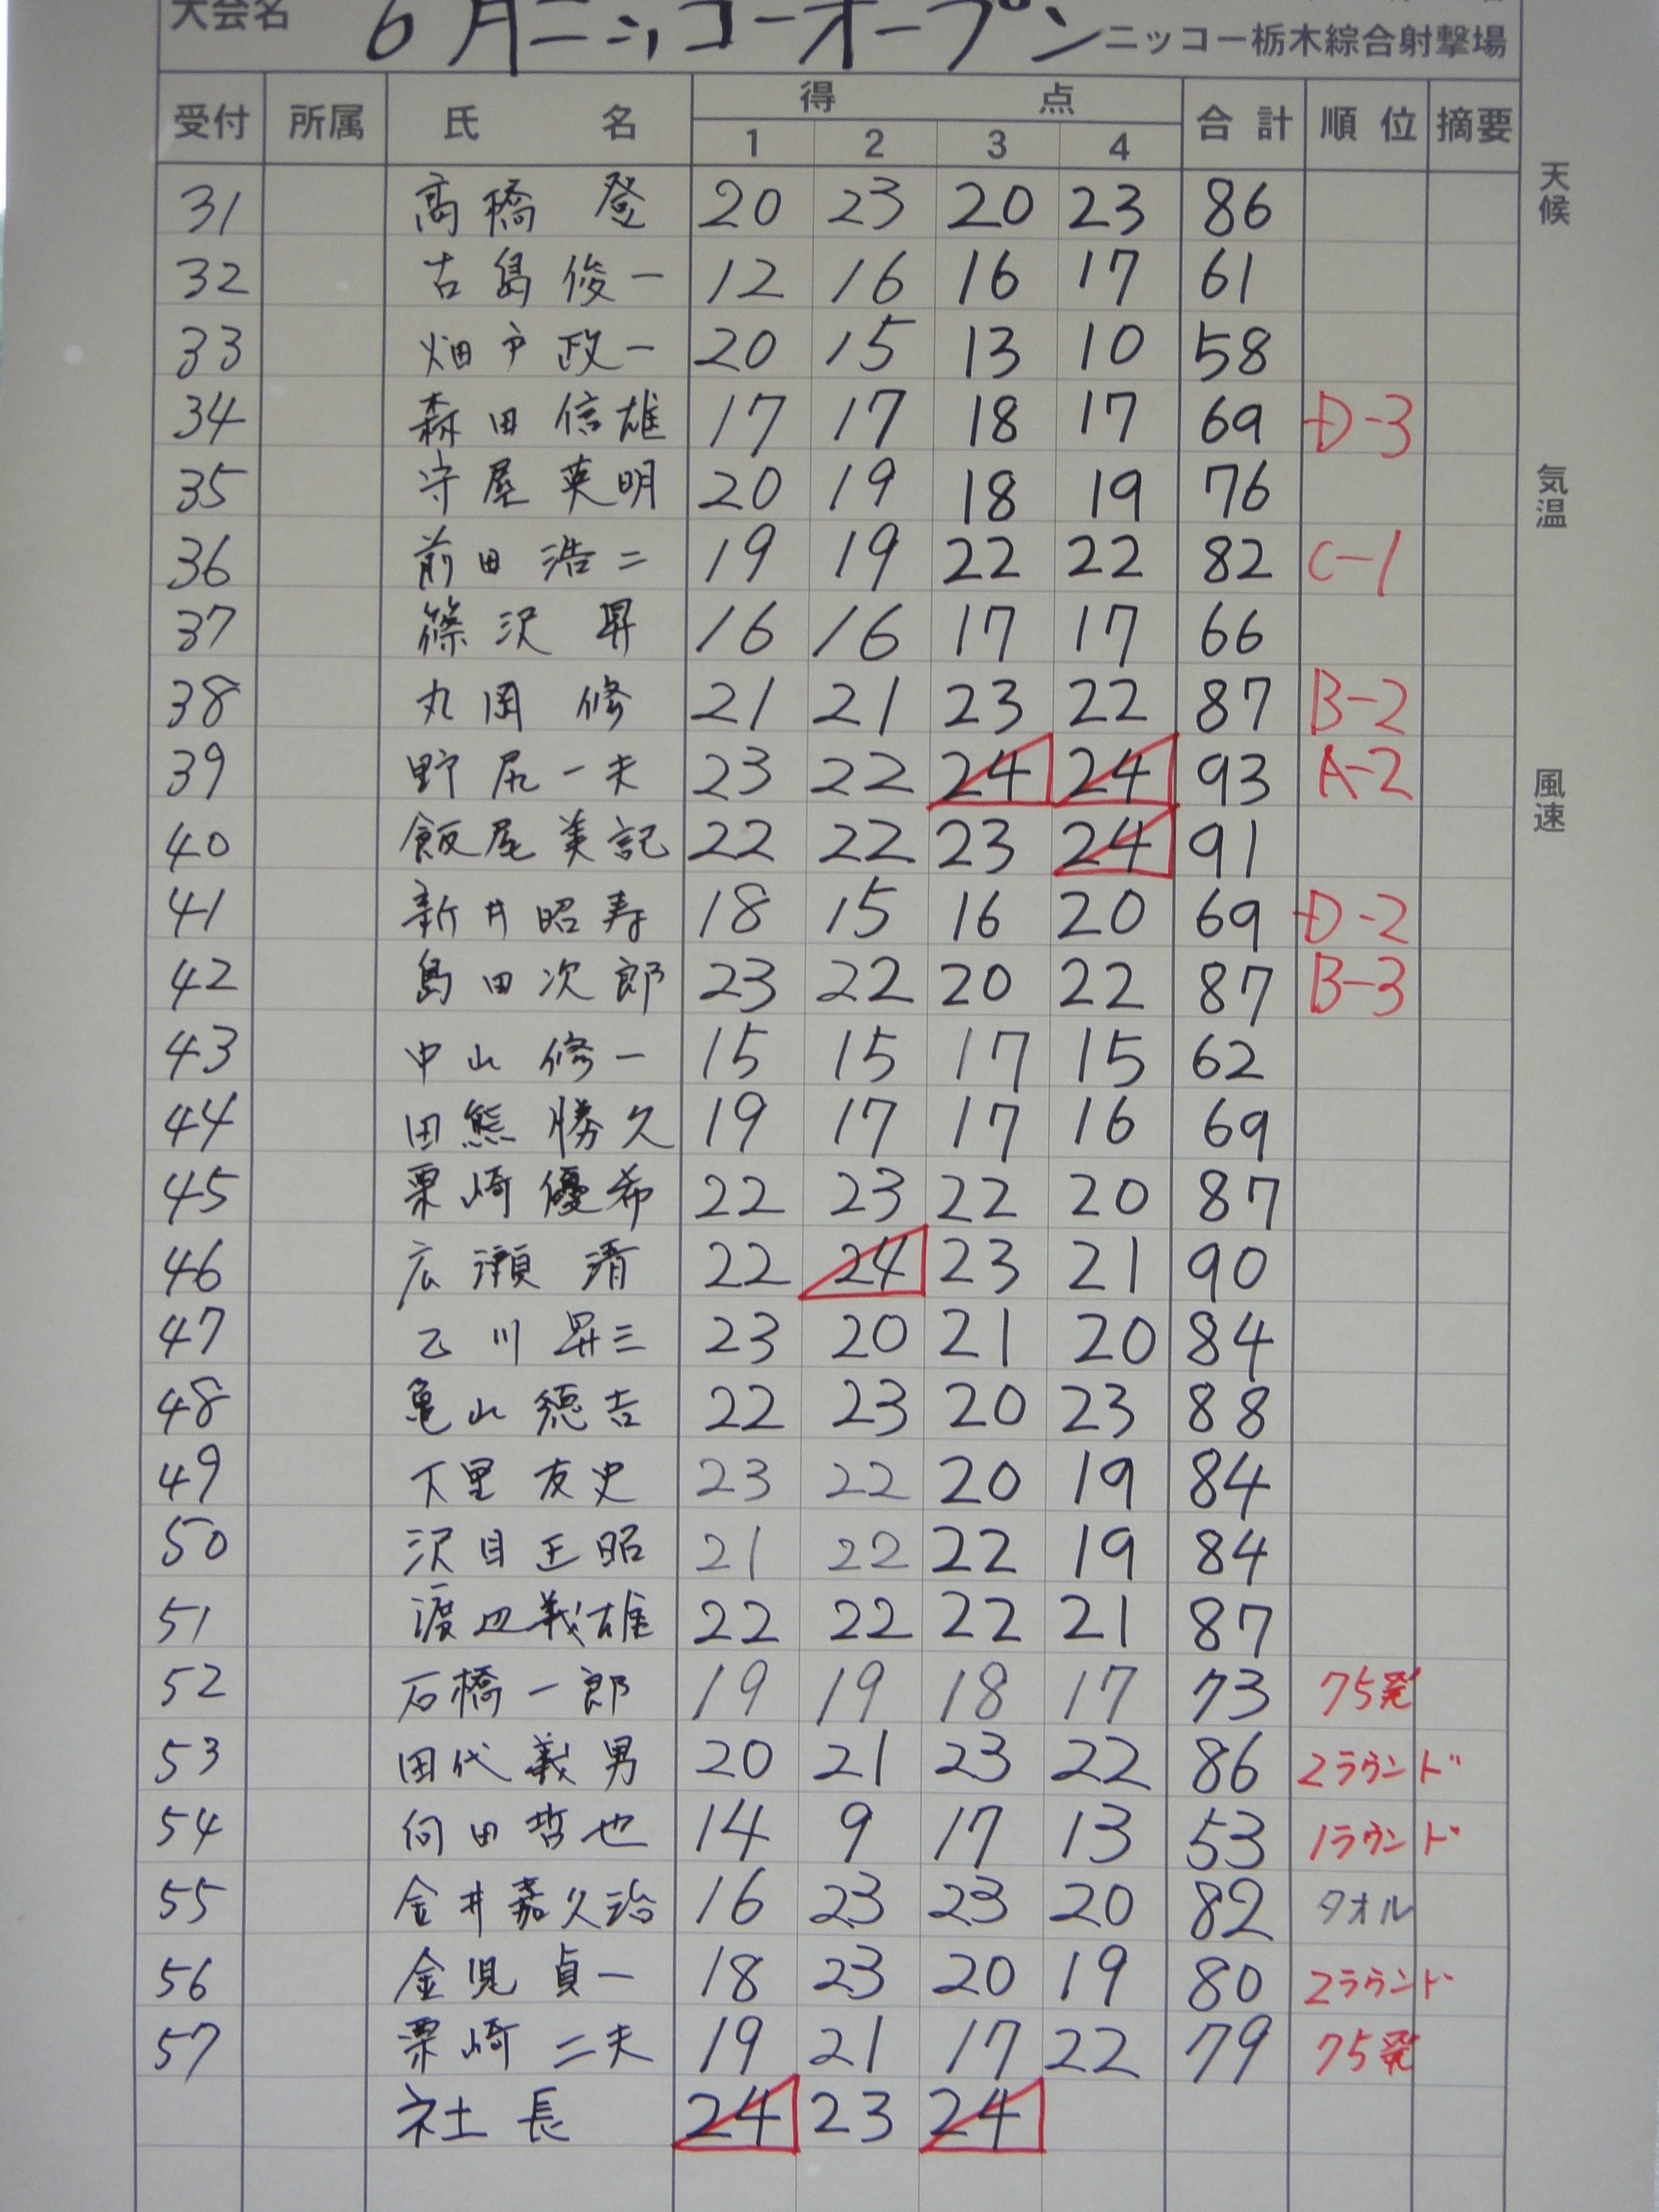 大会名 6月ニッコーオープン ニッコー栃木綜合射撃場
受付 所属 氏名 得点 合計 順位 摘要
1 2 3 4
天候
気温
風速
31 高橋 登 20 23 20 23 86
32 古島俊一 12 16 16 17 61
33 畑戸政一 20 15 13 10 58
34 森田信雄 17 17 18 17 69 D-3
35 守屋英明 20 19 18 19 76
36 前田浩二 19 19 22 22 82 C-1
37 篠沢 昇 16 16 17 17 66
38 丸岡 修 21 21 23 22 87 B-2
39 野尻一夫 23 22 24 24 93 A-2
40 飯尾美記 22 22 23 24 91
41 新井昭寿 18 15 16 20 69 D-2
42 島田次郎 23 22 20 22 87 B-3
43 中山修一 15 15 17 15 62
44 田熊勝久 19 17 17 16 69
45 栗崎優希 22 23 22 20 87
46 広瀬 清 22 24 23 21 90
47 乙川昇三 23 20 21 20 84
48 亀山徳吉 22 23 20 23 88
49 下里友史 23 22 20 19 84
50 沢目正昭 21 22 22 19 84
51 渡辺義雄 22 22 22 21 87
52 石橋一郎 19 19 18 17 73 75発
53 田代義男 20 21 23 22 86 2ラウンド
54 向田哲也 14 9 17 13 53 1ラウンド
55 金井嘉久治 16 23 23 20 82 タオル
56 金児貞一 18 23 20 19 80 2ラウンド
57 栗崎二夫 19 21 17 22 79 75発
社長 24 23 24